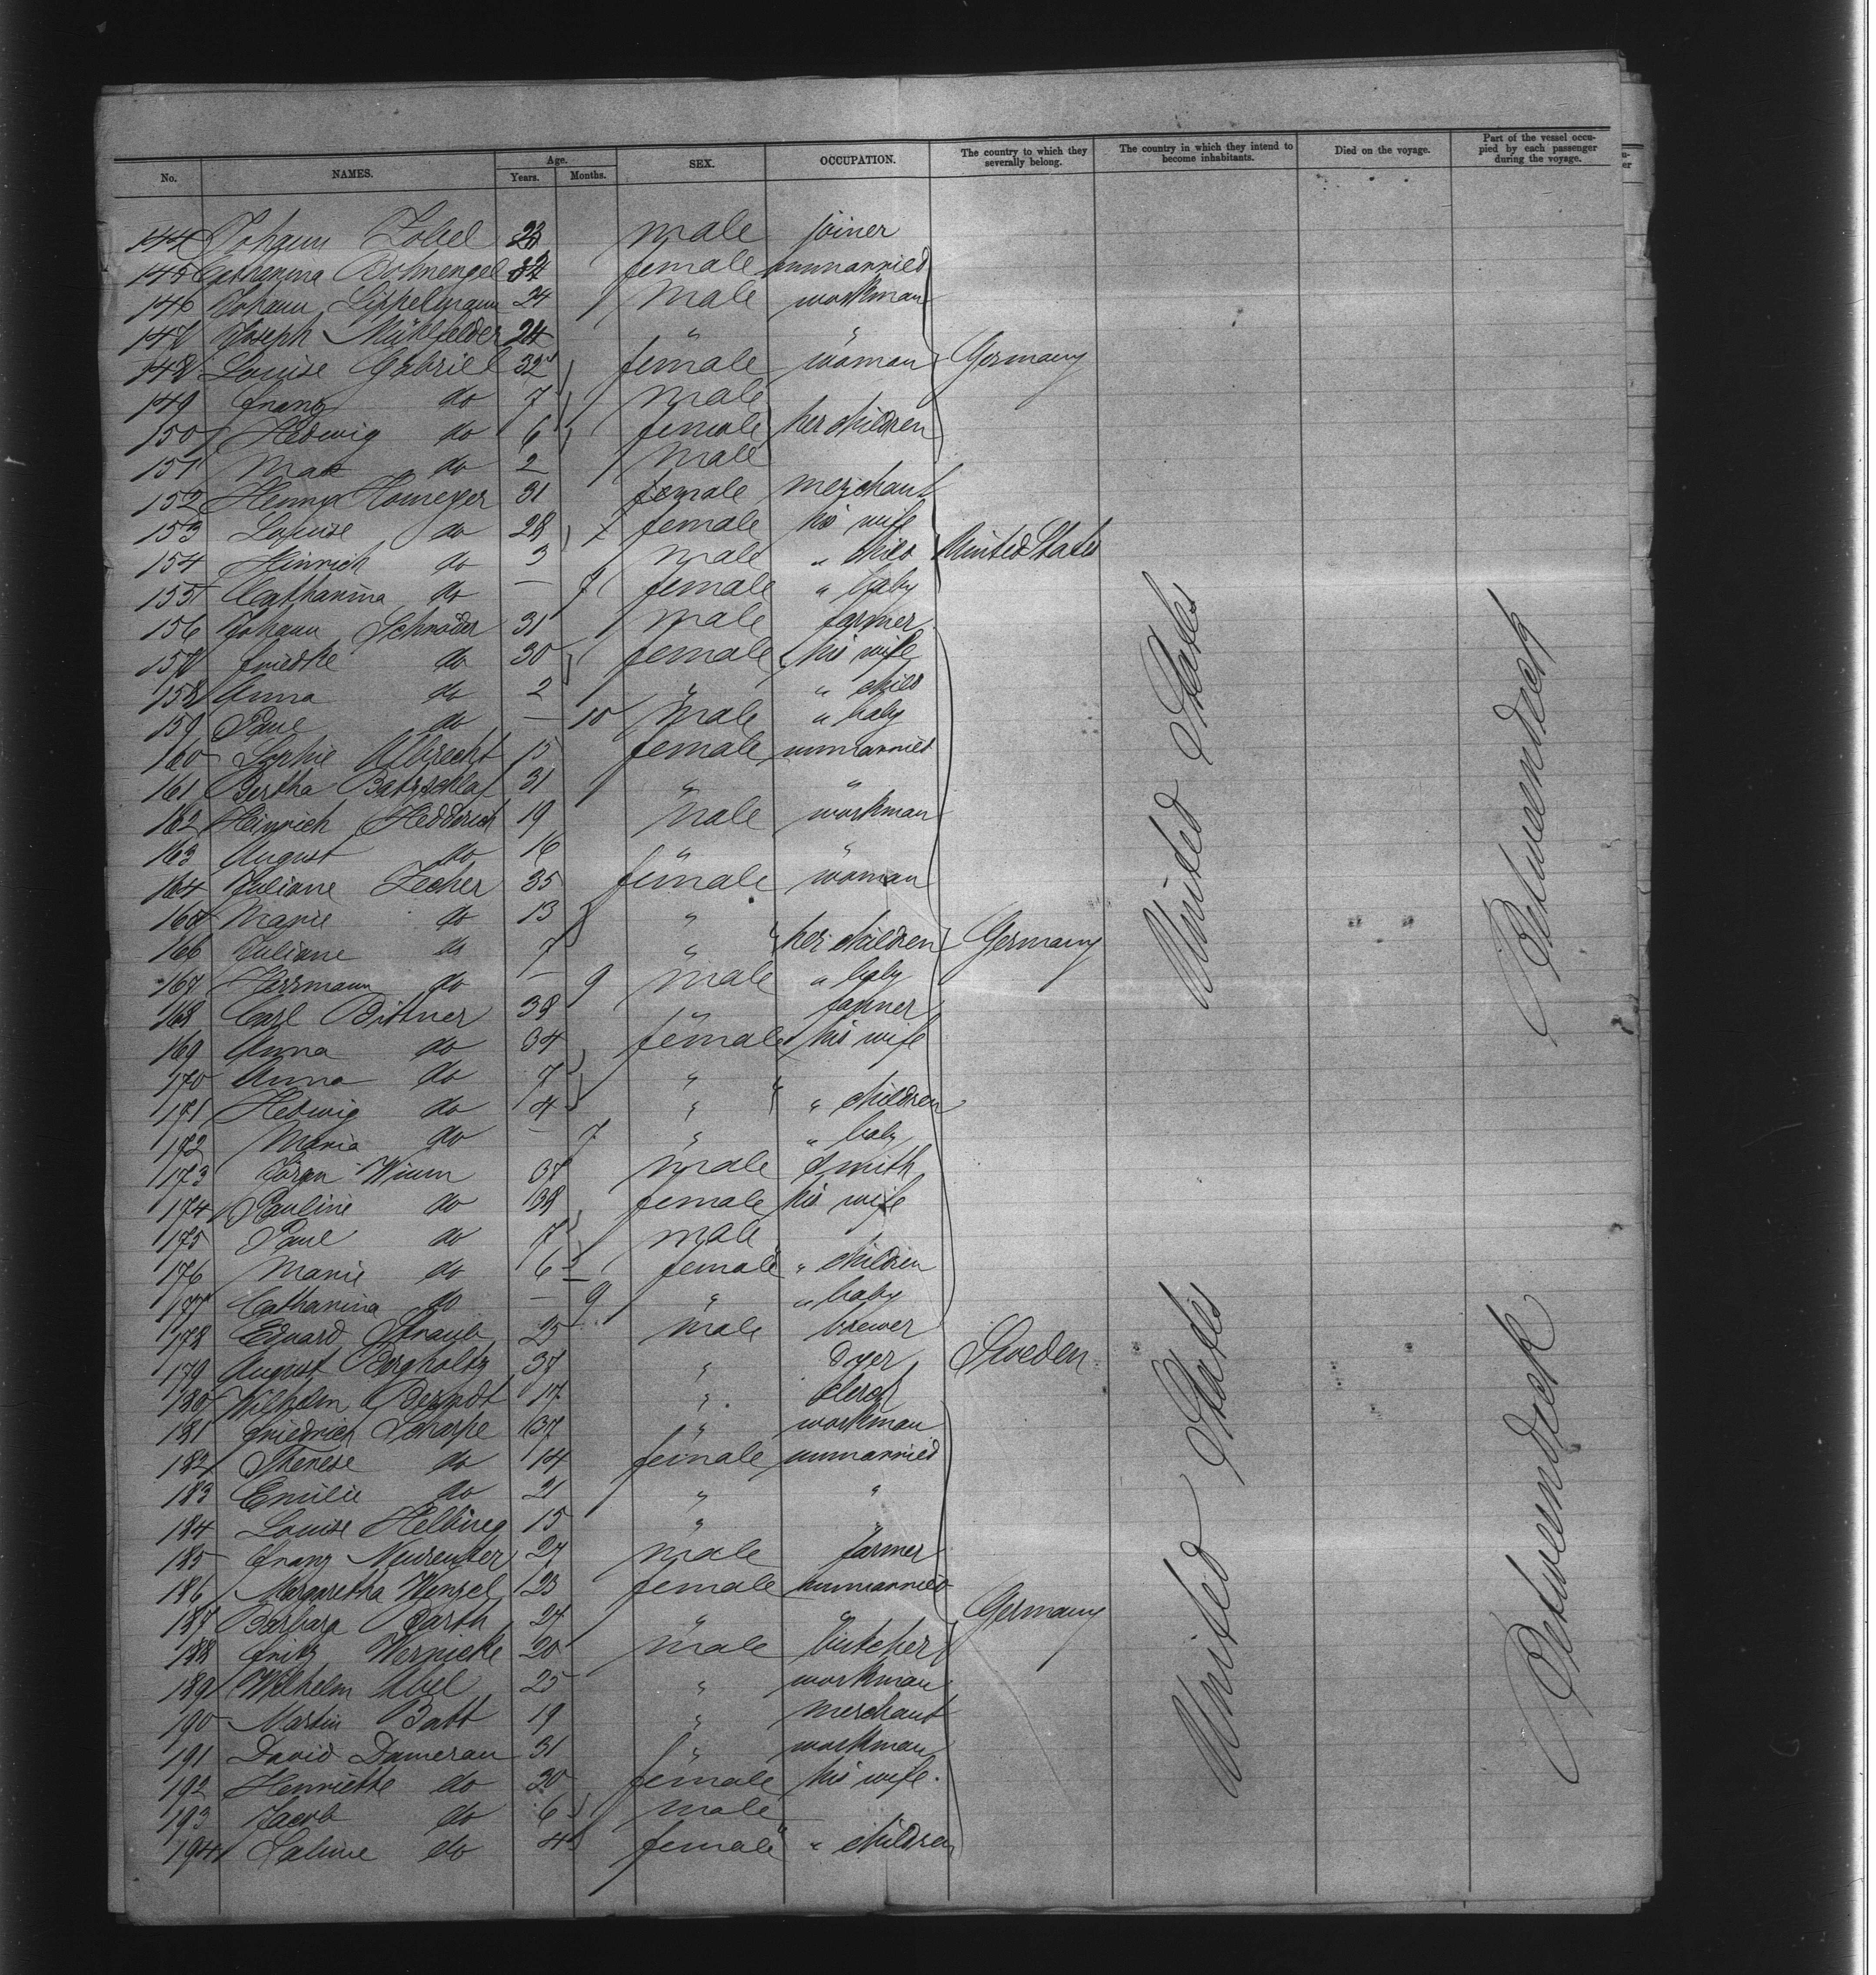 No. NAMES. Age. Years. Months. SEX. OCCUPATION. The country to which they severally belong. The country in which they intend to become inhabitants. Died on the voyage. Part of the vessel occupied by each passenger during the voyage.
144 Johann Zobel 23 male joiner
145 Catharina Bohnengel female unmarried
146 Johann Lippelmann 24 male workman
147 Joseph Mühlfelder 24 " "
148 Louise Gabriel 32 female woman Germany
149 Franz do 7 male
150 Hedwig do 6 female her children
151 Max do 2 male
152 Henny Homeyer 31 female merchant
153 Louise do 28 female his wife
154 Hinrich do 3 male " child United States
155 Catharina do — female " baby
156 Johann Schröder 31 male farmer
157 Friedke do 30 female his wife
158 Anna do 2 " " child
159 Paul do — 10 male " baby
160 Sophie Albrecht 15 female unmarried
161 Bertha Batzschlaf 31 " "
162 Heinrich Hedderich 19 male workman
163 August do 16 " "
164 Juliane Zecher 35 female woman
165 Marie do 13 "
166 Juliane do 7 " her children Germany
167 Herrmann do — 9 male " baby
168 Carl Bittner 38 " farmer
169 Anna do 34 female his wife
170 Anna do 7 "
171 Hedwig do 4 " " children
172 Maria do — 7 " " baby
173 Wium 37 male Smith
174 Pauline do 38 female his wife
175 Paul do 7 male
176 Marie do 6 female " children
177 Catharina do — 9 " " baby
178 Eduard Straub 25 male brewer
179 August Bergholtz 37 " Dyer Sweden
180 Wilhelm Berndt 17 " clerk
181 Friedrich Scharfe 37 " workman
182 Therese do 14 female unmarried
183 Emilie do 21 " "
184 Louise Helbing 15 " "
185 Franz Neureuther 27 male farmer
186 Margaretha Wenzel 23 female unmarried
187 Barbara Barth 24 " " Germany
188 Fritz Wernicke 20 male butcher
189 Wilhelm Abel 25 " workman
190 Martin Batt 19 " merchant
191 David Damerau 31 " workman
192 Henriette do 30 female his wife
193 Jacob do 6 male
194 Saline do 4 female " children
United States
Betweendeck
United States
Betweendeck